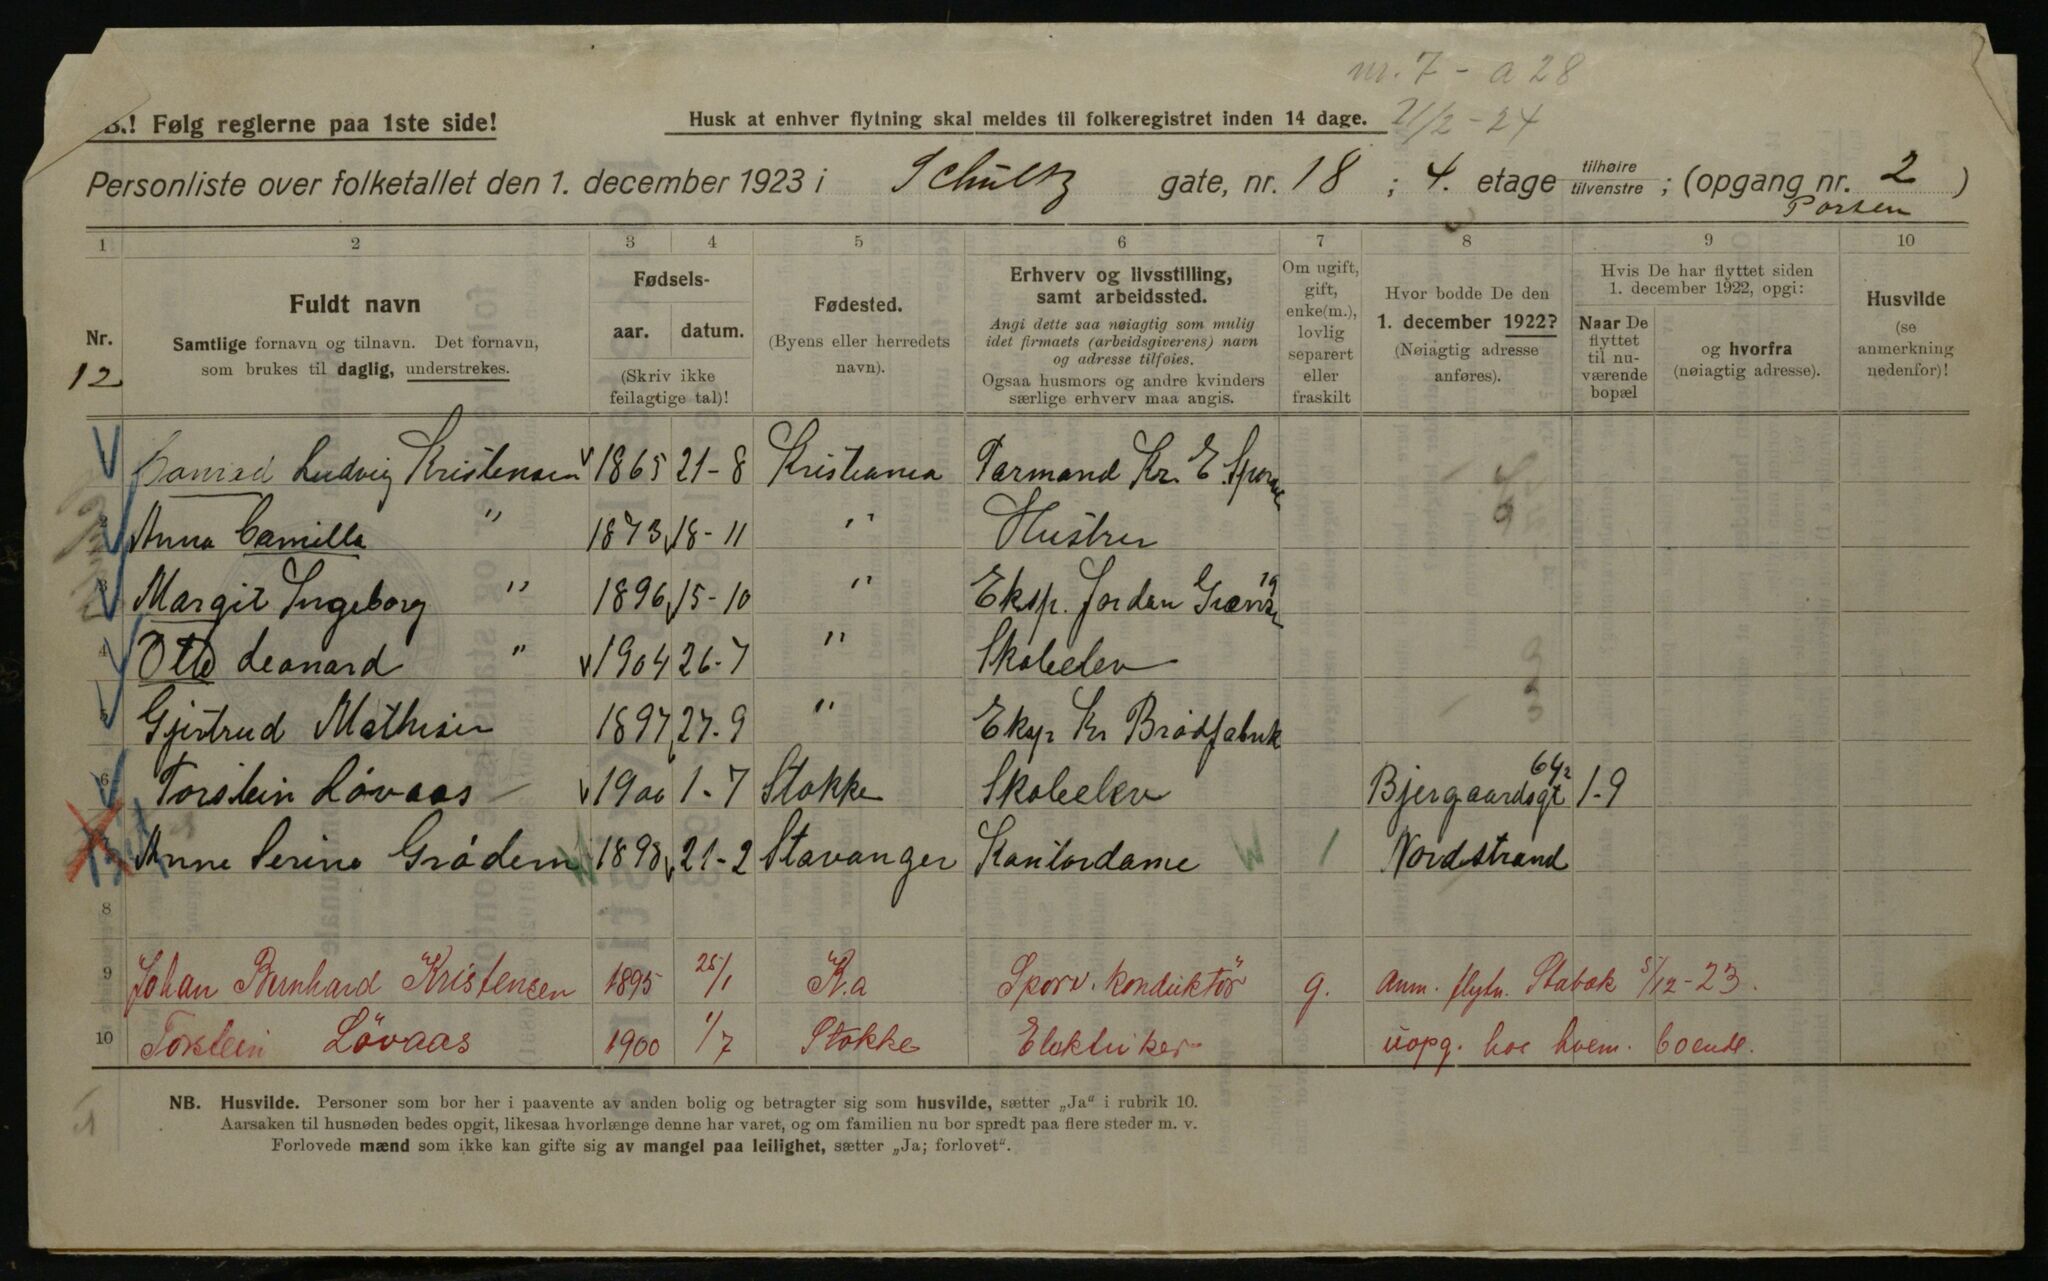 nr. 7 - a 28
B.! Følg reglerne paa 1ste side!
Husk at enhver flytning skal meldes til folkeregistret inden 14 dage.
21/2-24
Personliste over folketallet den 1. december 1923 i Schultz gate, nr. 18 ; 4. etage tilhøire tilvenstre ; (opgang nr. 2 )
1 2 3 4 5 6 7 8 9 10
Nr.
12
Fuldt navn
Samtlige fornavn og tilnavn. Det fornavn,
som brukes til daglig, understrekes.
Fødsels-
aar. datum.
(Skriv ikke
feilagtige tal)!
Fødested.
(Byens eller herredets
navn).
Erhverv og livsstilling,
samt arbeidssted.
Angi dette saa nøiagtig som mulig
idet firmaets (arbeidsgiverens) navn
og adresse tilføies.
Ogsaa husmors og andre kvinders
særlige erhverv maa angis.
Om ugift,
gift,
enke(m.),
lovlig
separert
eller
fraskilt
Hvor bodde De den
1. december 1922?
(Nøiagtig adresse
anføres).
Hvis De har flyttet siden
1. december 1922, opgi:
Naar De
flyttet
til nu-
værende
bopæl
og hvorfra
(nøiagtig adresse).
Husvilde
(se
anmerkning
nedenfor)!
Conrad Ludvig Kristensen 1865 21-8 Kristiania Formand Kr. E. Sporv
2 Anna Camilla " 1873 18-11 " Hustru
3 Margit Ingeborg " 1896 15-10 " Eksp. Jordan Grænsen 19
4 Otto Leonard " 1904 26-7 " Skoleelev
5 Gjertrud Mathisen 1897 27-9 " Eksp Kr Brødfabrik
6 Torstein Løvaas 1900 1-7 Stokke Skoleelev Bjergaardsgt 64 1-9
Anne Serine Grødem 1898 21-2 Stavanger Kontordame Nordstrand
8
9 Johan Bernhard Kristensen 1895 25/1 K.a Sporv. konduktör g. anm. flytn. Stabæk 5/12-23.
10 Torstein Lövaas 1900 1/7 Stokke Elektriker uopg. hos hvem. boende.
NB. Husvilde. Personer som bor her i paavente av anden bolig og betragter sig som husvilde, sætter „Ja" i rubrik 10.
Aarsaken til husnøden bedes opgit, likesaa hvorlænge denne har varet, og om familien nu bor spredt paa flere steder m. v.
Forlovede mænd som ikke kan gifte sig av mangel paa leilighet, sætter „Ja; forlovet".